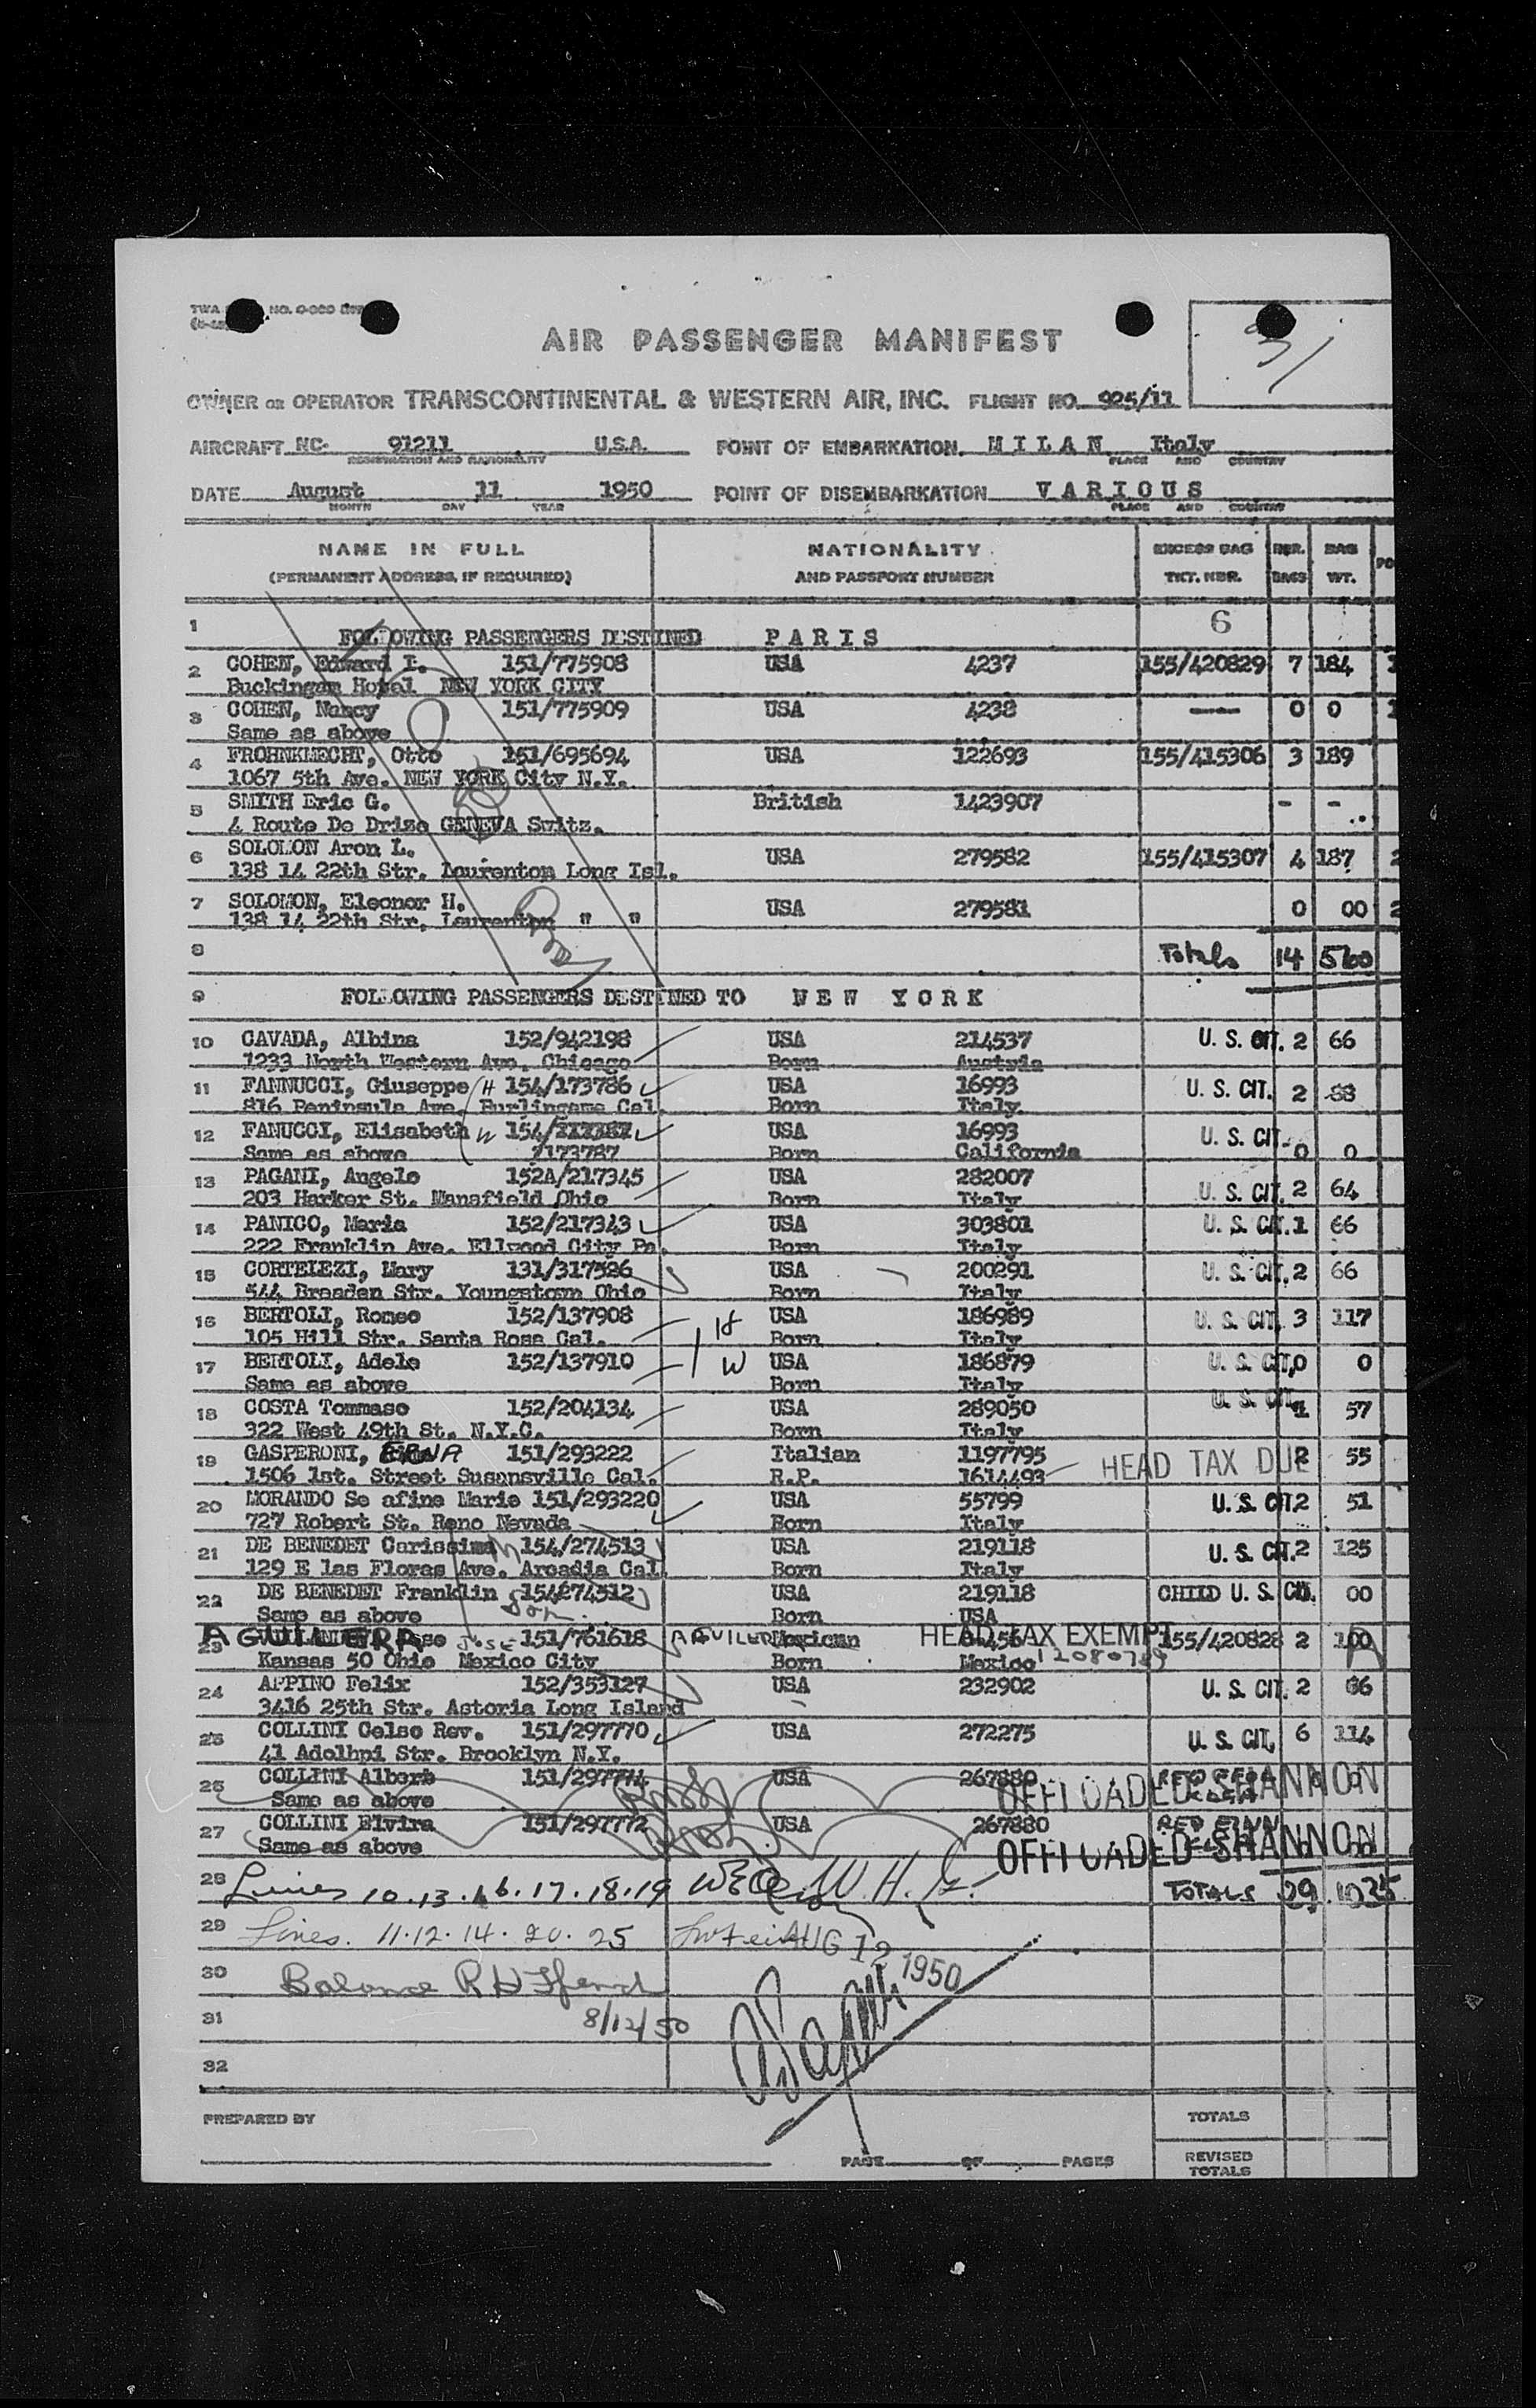 TWA NO.
AIR PASSENGER MANIFEST
OWNER OR OPERATOR TRANSCONTINENTAL & WESTERN AIR, INC. FLIGHT NO. 925/11
AIRCRAFT NC- 91211 U.S.A. POINT OF EMBARKATION MILAN Italy
REGISTRATION AND NATIONALITY PLACE AND COUNTRY
DATE August 11 1950 POINT OF DISEMBARKATION VARIOUS
MONTH DAY YEAR PLACE AND COUNTRY
NAME IN FULL NATIONALITY EXCESS BAG NBR. BAG
(PERMANENT ADDRESS, IF REQUIRED) AND PASSPORT NUMBER TKT. NBR. BAGS WT. PO
6
1 FOLLOWING PASSENGERS DESTINED PARIS
2 COHEN, Edward I. 151/775908 USA 4237 155/420829 7 184
Buckingam Hotel NEW YORK CITY
3 COHEN, Nancy 151/775909 USA 4238 — 0 0
Same as above
4 FROHNKNECHT, Otto 151/695694 USA 122693 155/415306 3 189
1067 5th Ave. NEW YORK City N.Y.
5 SMITH Eric G. British 1423907 - -
4 Route De Drize GENEVA Switz.
6 SOLOMON Aron L. USA 279582 155/415307 4 187 2
138 14 22th Str. Laurenton Long Isl.
7 SOLOMON, Eleonor H. USA 279581 0 00 2
138 14 22th Str. Laurenton " "
8 Totals 14 560
9 FOLLOWING PASSENGERS DESTINED TO NEW YORK
10 CAVADA, Albina 152/942198 USA 214537 U. S. CIT. 2 66
1233 North Western Ave. Chicago Born Austria
11 FANNUCCI, Giuseppe H 154/173786 USA 16993 U. S. CIT. 2 88
816 Peninsula Ave. Burlingame Cal. Born Italy
12 FANUCCI, Elisabeth W 154/ USA 16993 U. S. CIT. 0 0
Same as above 173787 Born California
13 PAGANI, Angelo 152A/217345 USA 282007 U. S. CIT. 2 64
203 Harker St. Mansfield Ohio Born Italy
14 PANICO, Maria 152/217343 USA 303801 U. S. CIT. 1 66
222 Franklin Ave. Ellwood City Pa. Born Italy
15 CORTELEZI, Mary 131/317526 USA 200291 U. S. CIT. 2 66
544 Breaden Str. Youngstown Ohio Born Italy
16 BERTOLI, Romeo 152/137908 H USA 186989 U. S. CIT. 3 117
105 Hill Str. Santa Rosa Cal. Born Italy
17 BERTOLI, Adele 152/137910 W USA 186879 U. S. CIT. 0 0
Same as above Born Italy
18 COSTA Tommaso 152/204134 USA 289050 U. S. CIT. 1 57
322 West 49th St. N.Y.C. Born Italy
19 GASPERONI, ERNA 151/293222 Italian 1197795 HEAD TAX DUE 2 55
1506 1st. Street Susansville Cal. R.P. 1614493
20 MORANDO Se afine Marie 151/293220 USA 55799 U. S. CIT. 2 51
727 Robert St. Reno Nevada Born Italy
21 DE BENEDET Carissima 154/274513 USA 219118 U. S. CIT. 2 125
129 E las Flores Ave. Arcadia Cal. Born Italy
22 DE BENEDET Franklin 154274512 USA 219118 CHILD U. S. CIT. 00
Same as above Son Born USA
23 AGUILERA JOSE 151/761618 AGUILERA Mexican HEAD TAX EXEMPT 155/420828 2 100
Kansas 50 Ohio Mexico City Born Mexico
24 APPINO Felix 152/353127 USA 232902 U. S. CIT. 2 66
3416 25th Str. Astoria Long Island
25 COLLINI Celso Rev. 151/297770 USA 272275 U. S. CIT. 6 114
41 Adolhpi Str. Brooklyn N.Y.
26 COLLINI Albert 151/297771 USA 267880 OFFLOADED SHANNON
Same as above
27 COLLINI Elvira 151/297772 USA 267880 OFFLOADED SHANNON
Same as above
28 Lines 10.13.16.17.18.19 TOTALS 29 1035
29 Lines. 11.12.14.20.25 AUG 12 1950
30 Balance
31 8/12/50
32
PREPARED BY TOTALS
PAGE OF PAGES REVISED
TOTALS